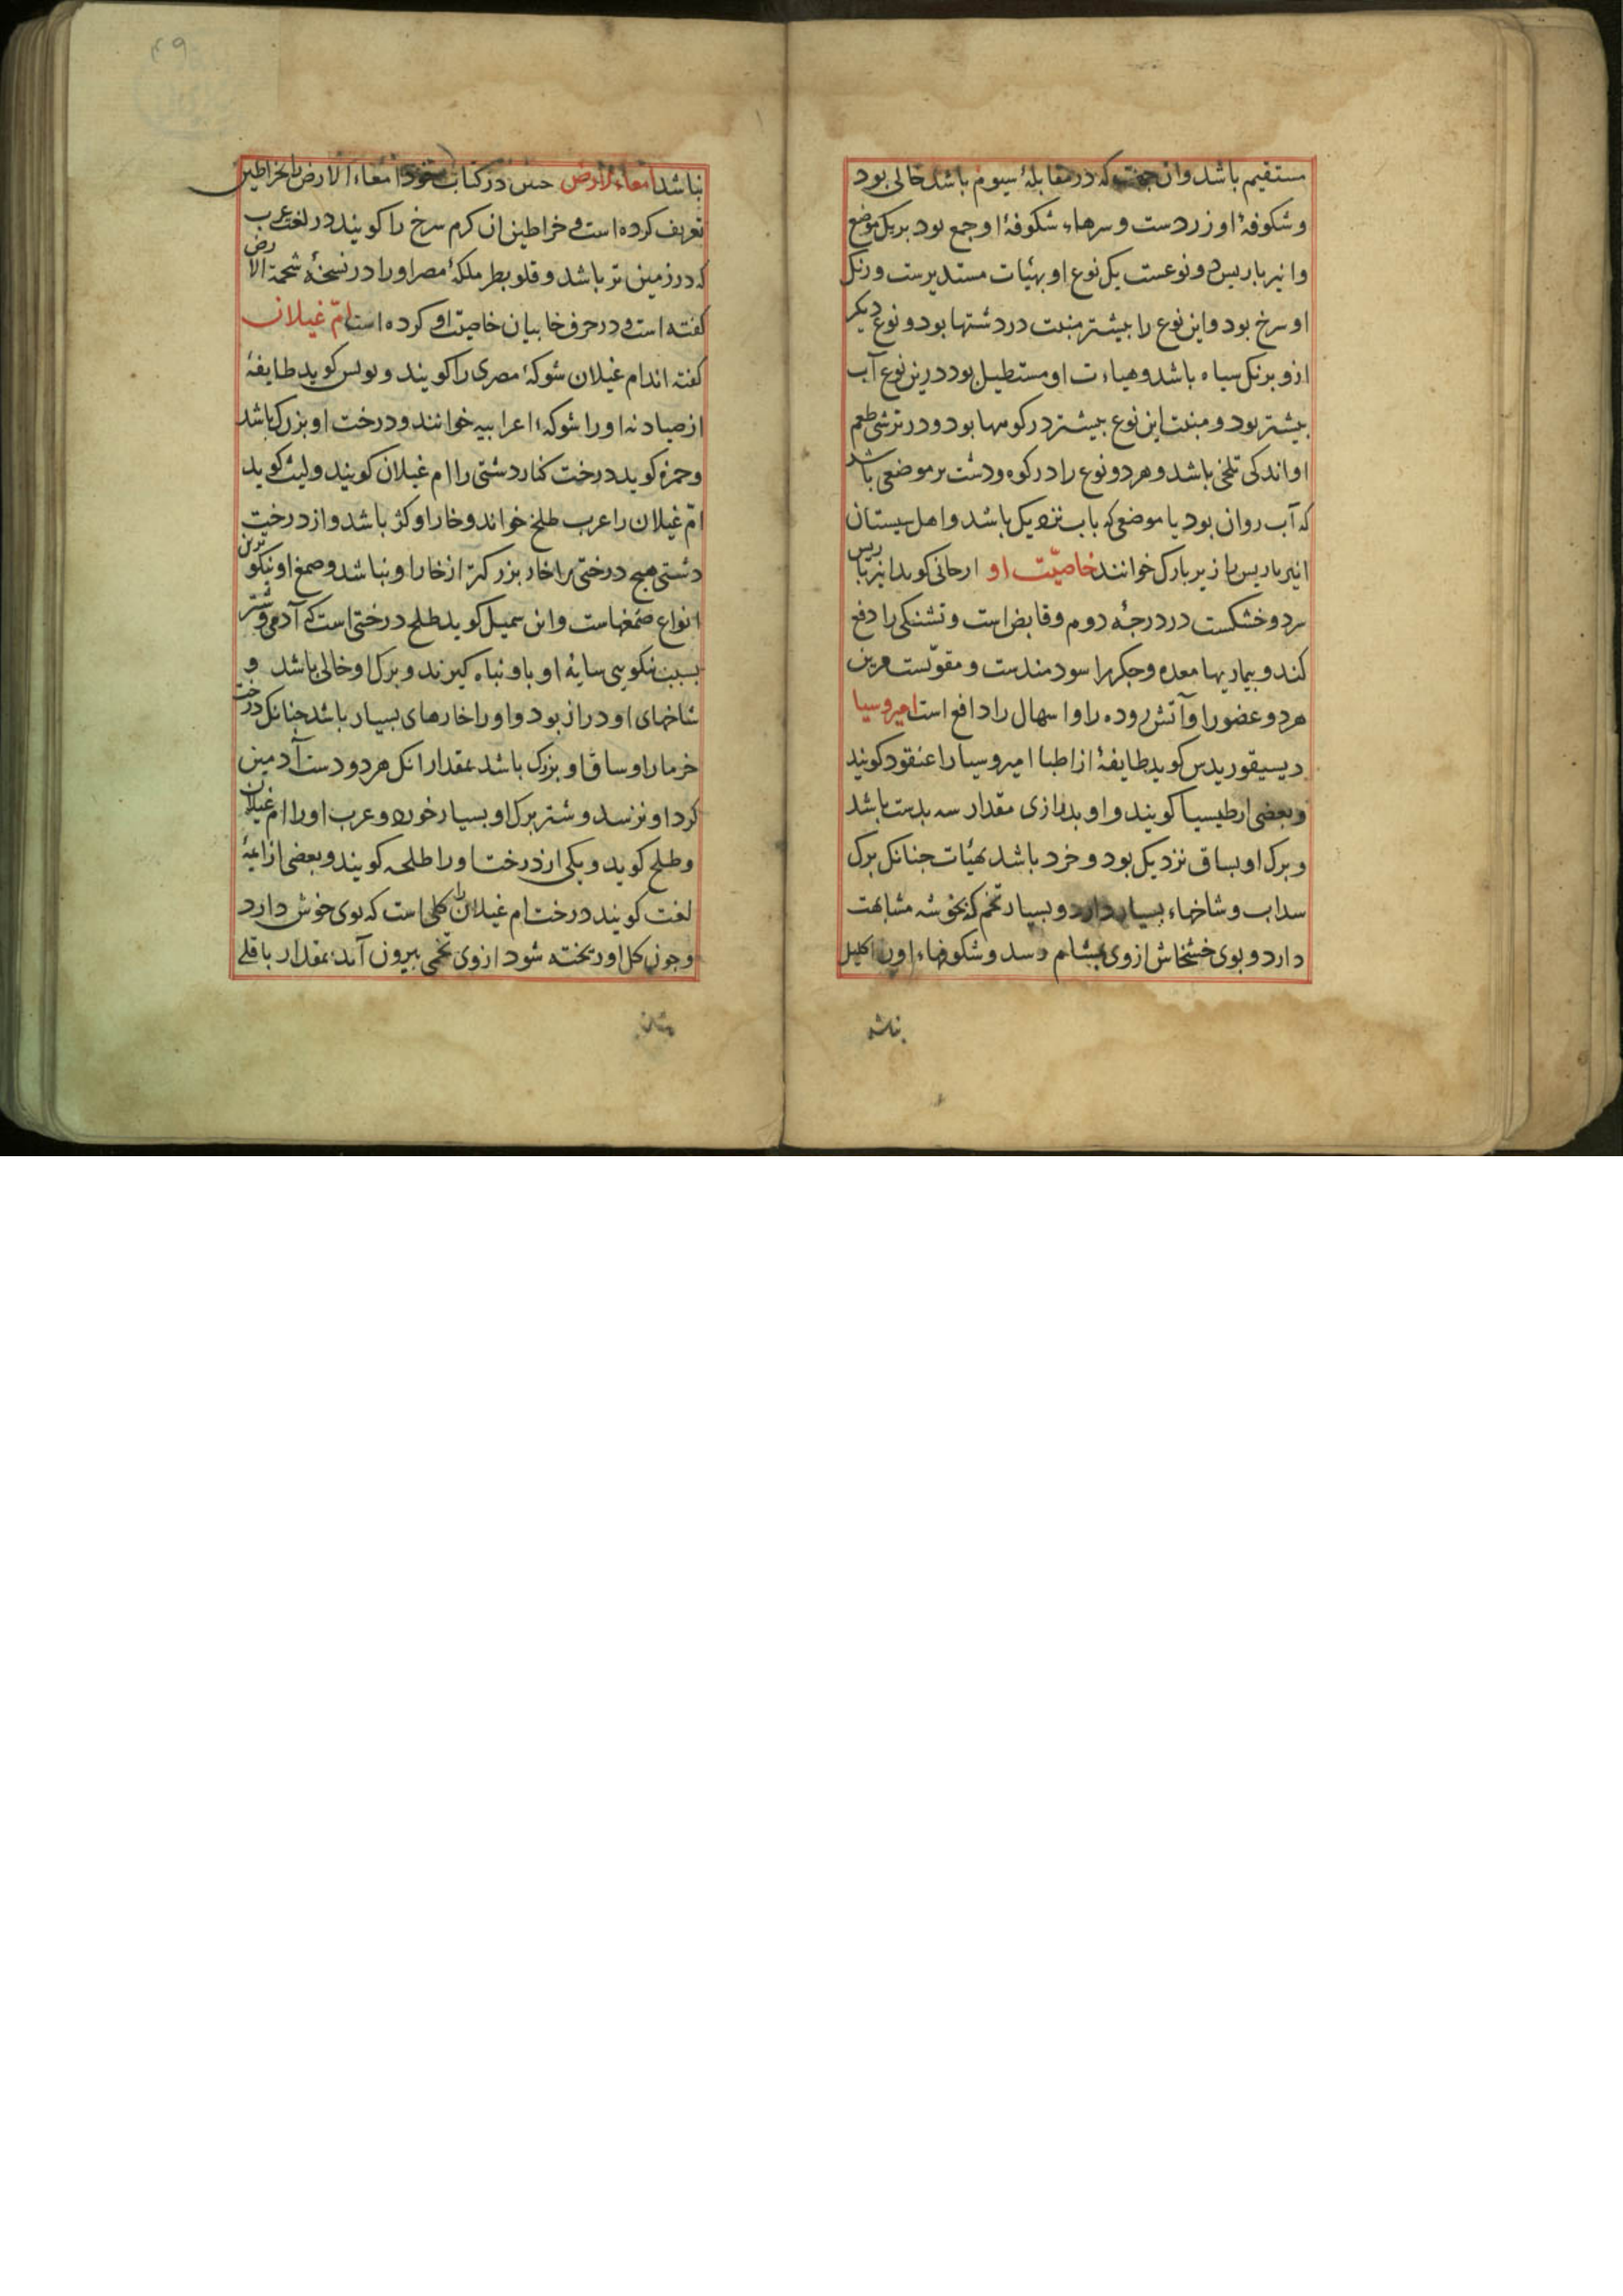 مستقیم باشد وان جفت که در مقابلهٔ سیوم باشد خالی بود
و شکوفهٔ او زردست و سرهاء شکوفهٔ او جمع بود بریک موضع
وانبرباریس دو نوعست یک نوع او بهیات مستدیرست و رنک
او سرخ بود و این نوع را بیشتر منبت در دشتها بود و نوع دیکر
ازو برنک سیاه باشد و هیاءت او مستطیل بود درین نوع آب
بیشتر بود و منبت این نوع بیشتر در کوهها بود و در ترشی طعم
او اندکی تلخی باشد و هر دو نوع را در کوه و دشت بر موضعی باشد
که آب روان بود یا موضعی که باب نزدیک باشد و اهل سیستان
انبرباریس را زیربارک خوانند خاصیّت او ارجانی کوید انبرباریس
سرد و خشکست در درجهٔ دوم و قابض است و تشنکی را دفع
کند و بیماریها معده و جکر را سودمندست و مقویست مرین
هر دو عضو را و آتش روده را و اسهال را دافع است امیروسیا
دیسیقوریدس کوید طایفهٔ از اطبا امیروسیا را عنقود کویند
و بعضی ارطیسیا کویند و او بدرازی مقدار سه بدست باشد
و برک او بساق نزدیک بود و خرد باشد بهیات جنانک برک
سداب و شاخهاء بسیار دارد و بسیار تخم که بخوشه مشابهت
دارد و بوی خشخاش ازوی بمشام رسد و شکوفهاء اورا اکلیل
نباشد
نباشد امعاء الارض حسن در کتاب خود امعاء الارض را بخراطین
تعریف کرده است و خراطین ان کرم سرخ را کویند در لغت عرب
که در زمین تر باشد و قلوبطر ملکهٔ مصر اورا در نسخهٔ شحمة الارض
کفته است و در حرف خا بیان خاصیت او کرده است امّ غیلان
کفته اند ام غیلان شوکهٔ مصری را کویند و بولس کوید طایفهٔ
از صیادنه اورا شوکهٔ اعرابیه خوانند و درخت او بزرک باشد
و حمزه کوید درخت کنار دشتی را ام غیلان کویند و لیث کوید
امّ غیلان را عرب طلح خواند و خار او کژ باشد و از درخت
دشتی هیج درختی را خار بزرکتر از خار او نباشد و صمغ او نیکوترین
انواع صمغهاست و ابن سمیل کوید طلح درختی است که آدمی و شتر
بسبب نیکویی سایهٔ او باو پناه کیرند و برک او خالی باشد و
شاخهای او دراز بود و اورا خارهای بسیار باشد جنانک درخت
خرما را و ساق او بزرک باشد بمقدار انک هر دو دست آدمین
کرد او نرسد و شتر برک او بسیار خورد و عرب اورا ام غیلان
و طلح کوید و یکی از درخت اورا طلحه کویند و بعضی از ایمهٔ
لغت کویند درخت ام غیلان را کلی است که بوی خوش دارد
و جون کل او ریخته شود ازوی تخمی بیرون آمد بمقدار باقلی